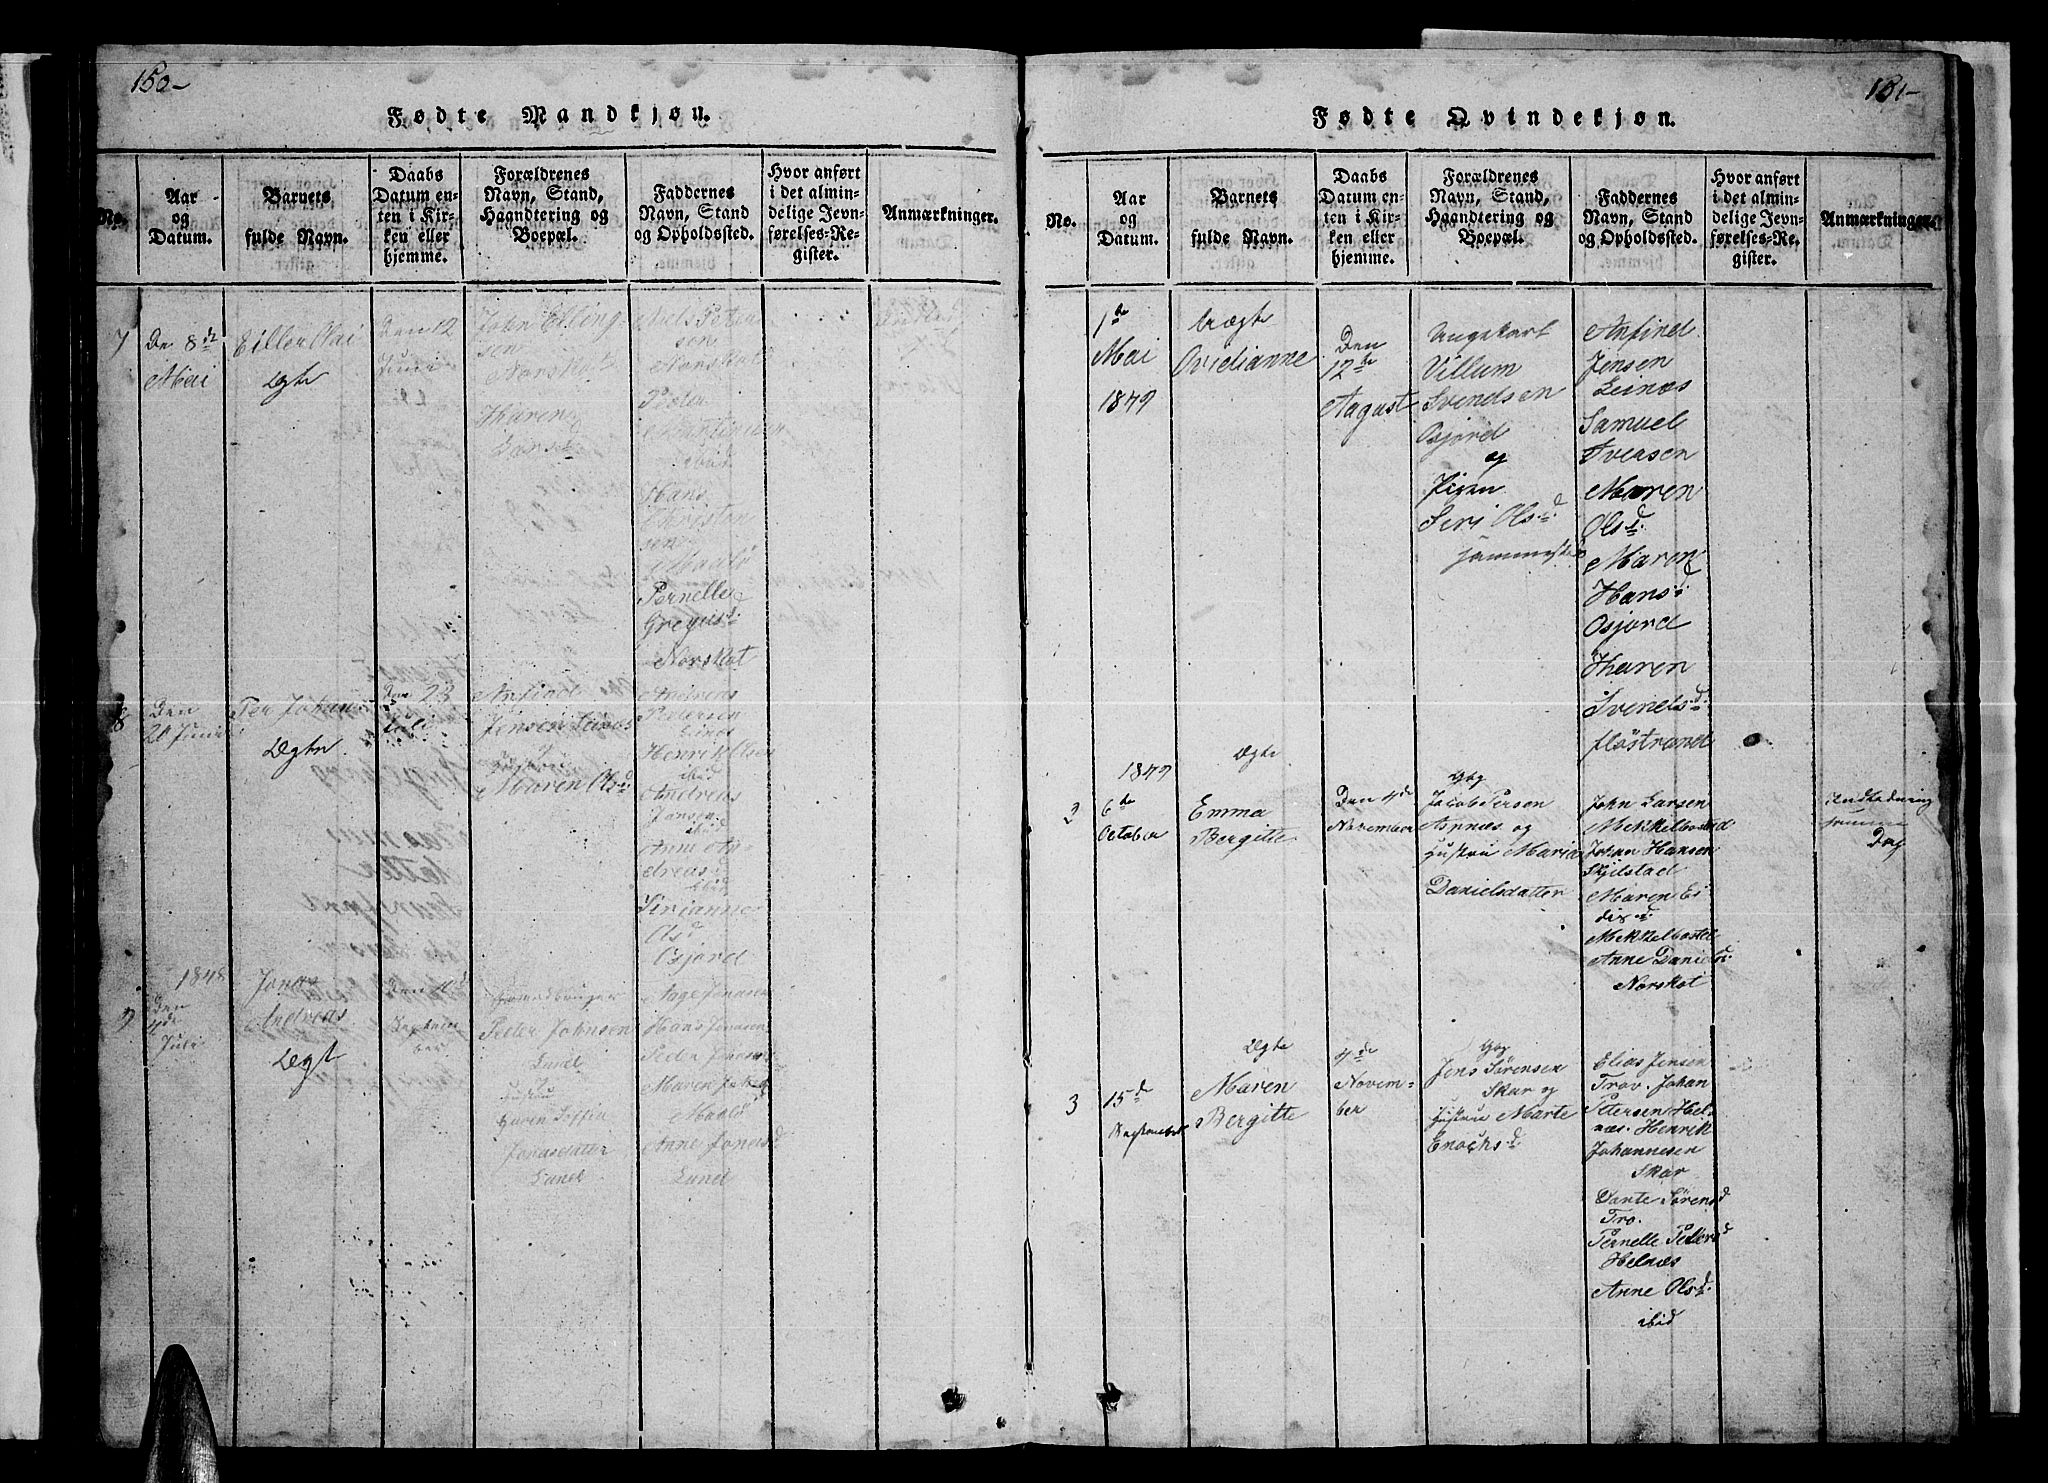 150-
Fødte Mandkjøn.
No.
Aar
og
Datum.
Barnets
fulde Navn.
Daabs
Datum en-
ten i Kir-
ken eller
hjemme.
Forældrenes
Navn, Stand,
Haandtering og
Boepæl.
Faddernes
Navn, Stand
og Opholdssted.
Hvor anført
i det almin-
delige Jevn-
førelses-Re-
gister.
Anmærkninger.
7
De 8de
Mai
Eiller Olai
Ægte
Den 12
Juni
John Elling
sen
Norskot
Maren
Niels Peter
sen
Norskot
Peder
ibid
Hans
Christen
sen
Pernelle
Gregusd.
Norskot
8
Den
20 Juni
Per Johan
Ægte
Den 23
Juli
Anfind
Jensen Leinæs
og
Hustru
Maren Olsd.
Andreas
Pedersen
Leines
Henrik Olsen
ibid
Andreas
Jansen
ibid
Ann An-
dreasd
ibid
Sirianne
Olsd
Osjord
9
1848
Den
4de
Juli
Jonas
Andreas
Ægt
Den 10d
Septem
ber
Gaardbruger
Peder Johnsen
Lund
Karen Siffia
Jonasdatter
Lund
Aage Jonasen
Hans Jonasen
Peder Jonasen
Maren
Anne Jonasd
Lund
151-
Fødte Qvindekjøn.
No.
Aar
og
Datum.
Barnets
fulde Navn.
Daabs
Datum en-
ten i Kir-
ken eller
hjemme.
Forældrenes
Navn, Stand,
Haandtering og
Boepæl.
Faddernes
Navn, Stand
og Opholdssted.
Hvor anført
i det almin-
delige Jevn-
førelses-Re-
gister.
Anmærkninger.
1de
Mai
1849
Uægte
Ovidianne
Den
12te
August
Ungekarl
Villum
Svendsen
Osjord
og
Pigen
Siri Olsd.
sammested
Anfind
Jensen
Leinæs
Samuel
Iversen
Maren
Olsd.
Maren
Hansd
Osjord
Karen
Svendsd.
flostrand
2
1849
6te
October
Ægte
Emma
Bergitte
Den 4de
November
Gbg
Jacob Persen
Asnæs og
Hustru Maria
Danielsdatter
John Larsen
Mekkelbosted
Johan Hansen
Skjelstad
Maren Es
disd.
Mekkelbosted
Anne Danielsd.
Norskot
Indledning
samme
Dag
3
15d
September
Ægte
Maren
Bergitte
4de
Novem-
ber
Gbg
Jens Sørensen
Skar og
Hustru Marte
Enochsd.
Elias Jensen
Trov. Johan
Petersen Hel-
næs. Henrik
Johannesen
Skar
Dante Sørensd
Tro.
Pernelle Pedersd
Helnæs
Anne Olsd.
ibid